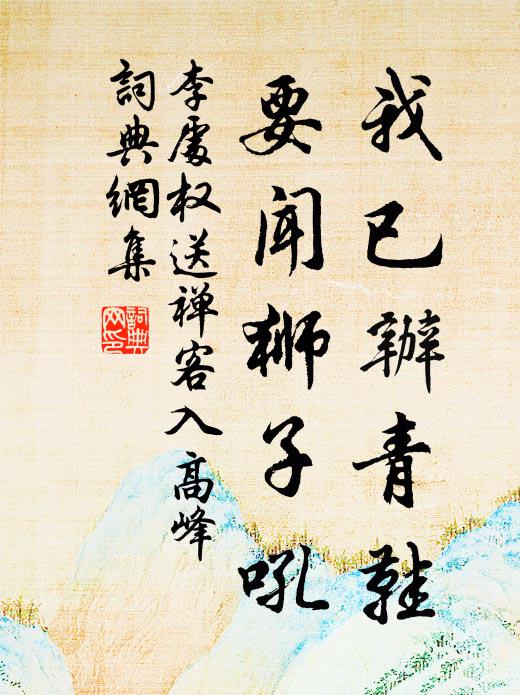 我已辦青鞋
要闻狮子吼
李處权送禅客入高峰
詞典網集
詞典網印